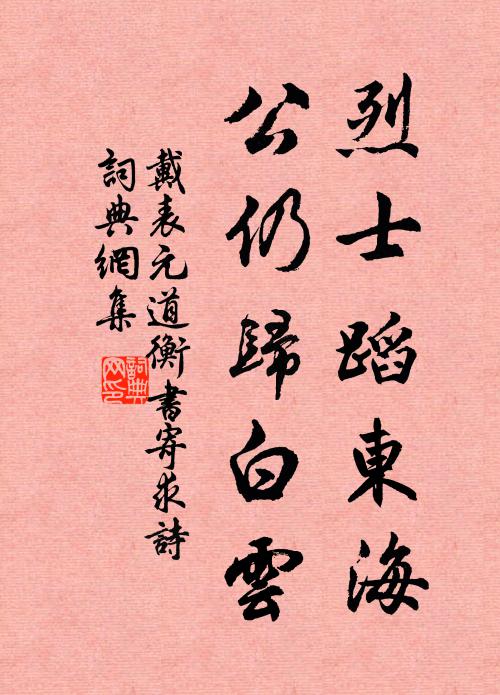 烈士蹈東海
公仍歸白雲
戴表元道衡書寄求詩
詞典網集
詞典
网印